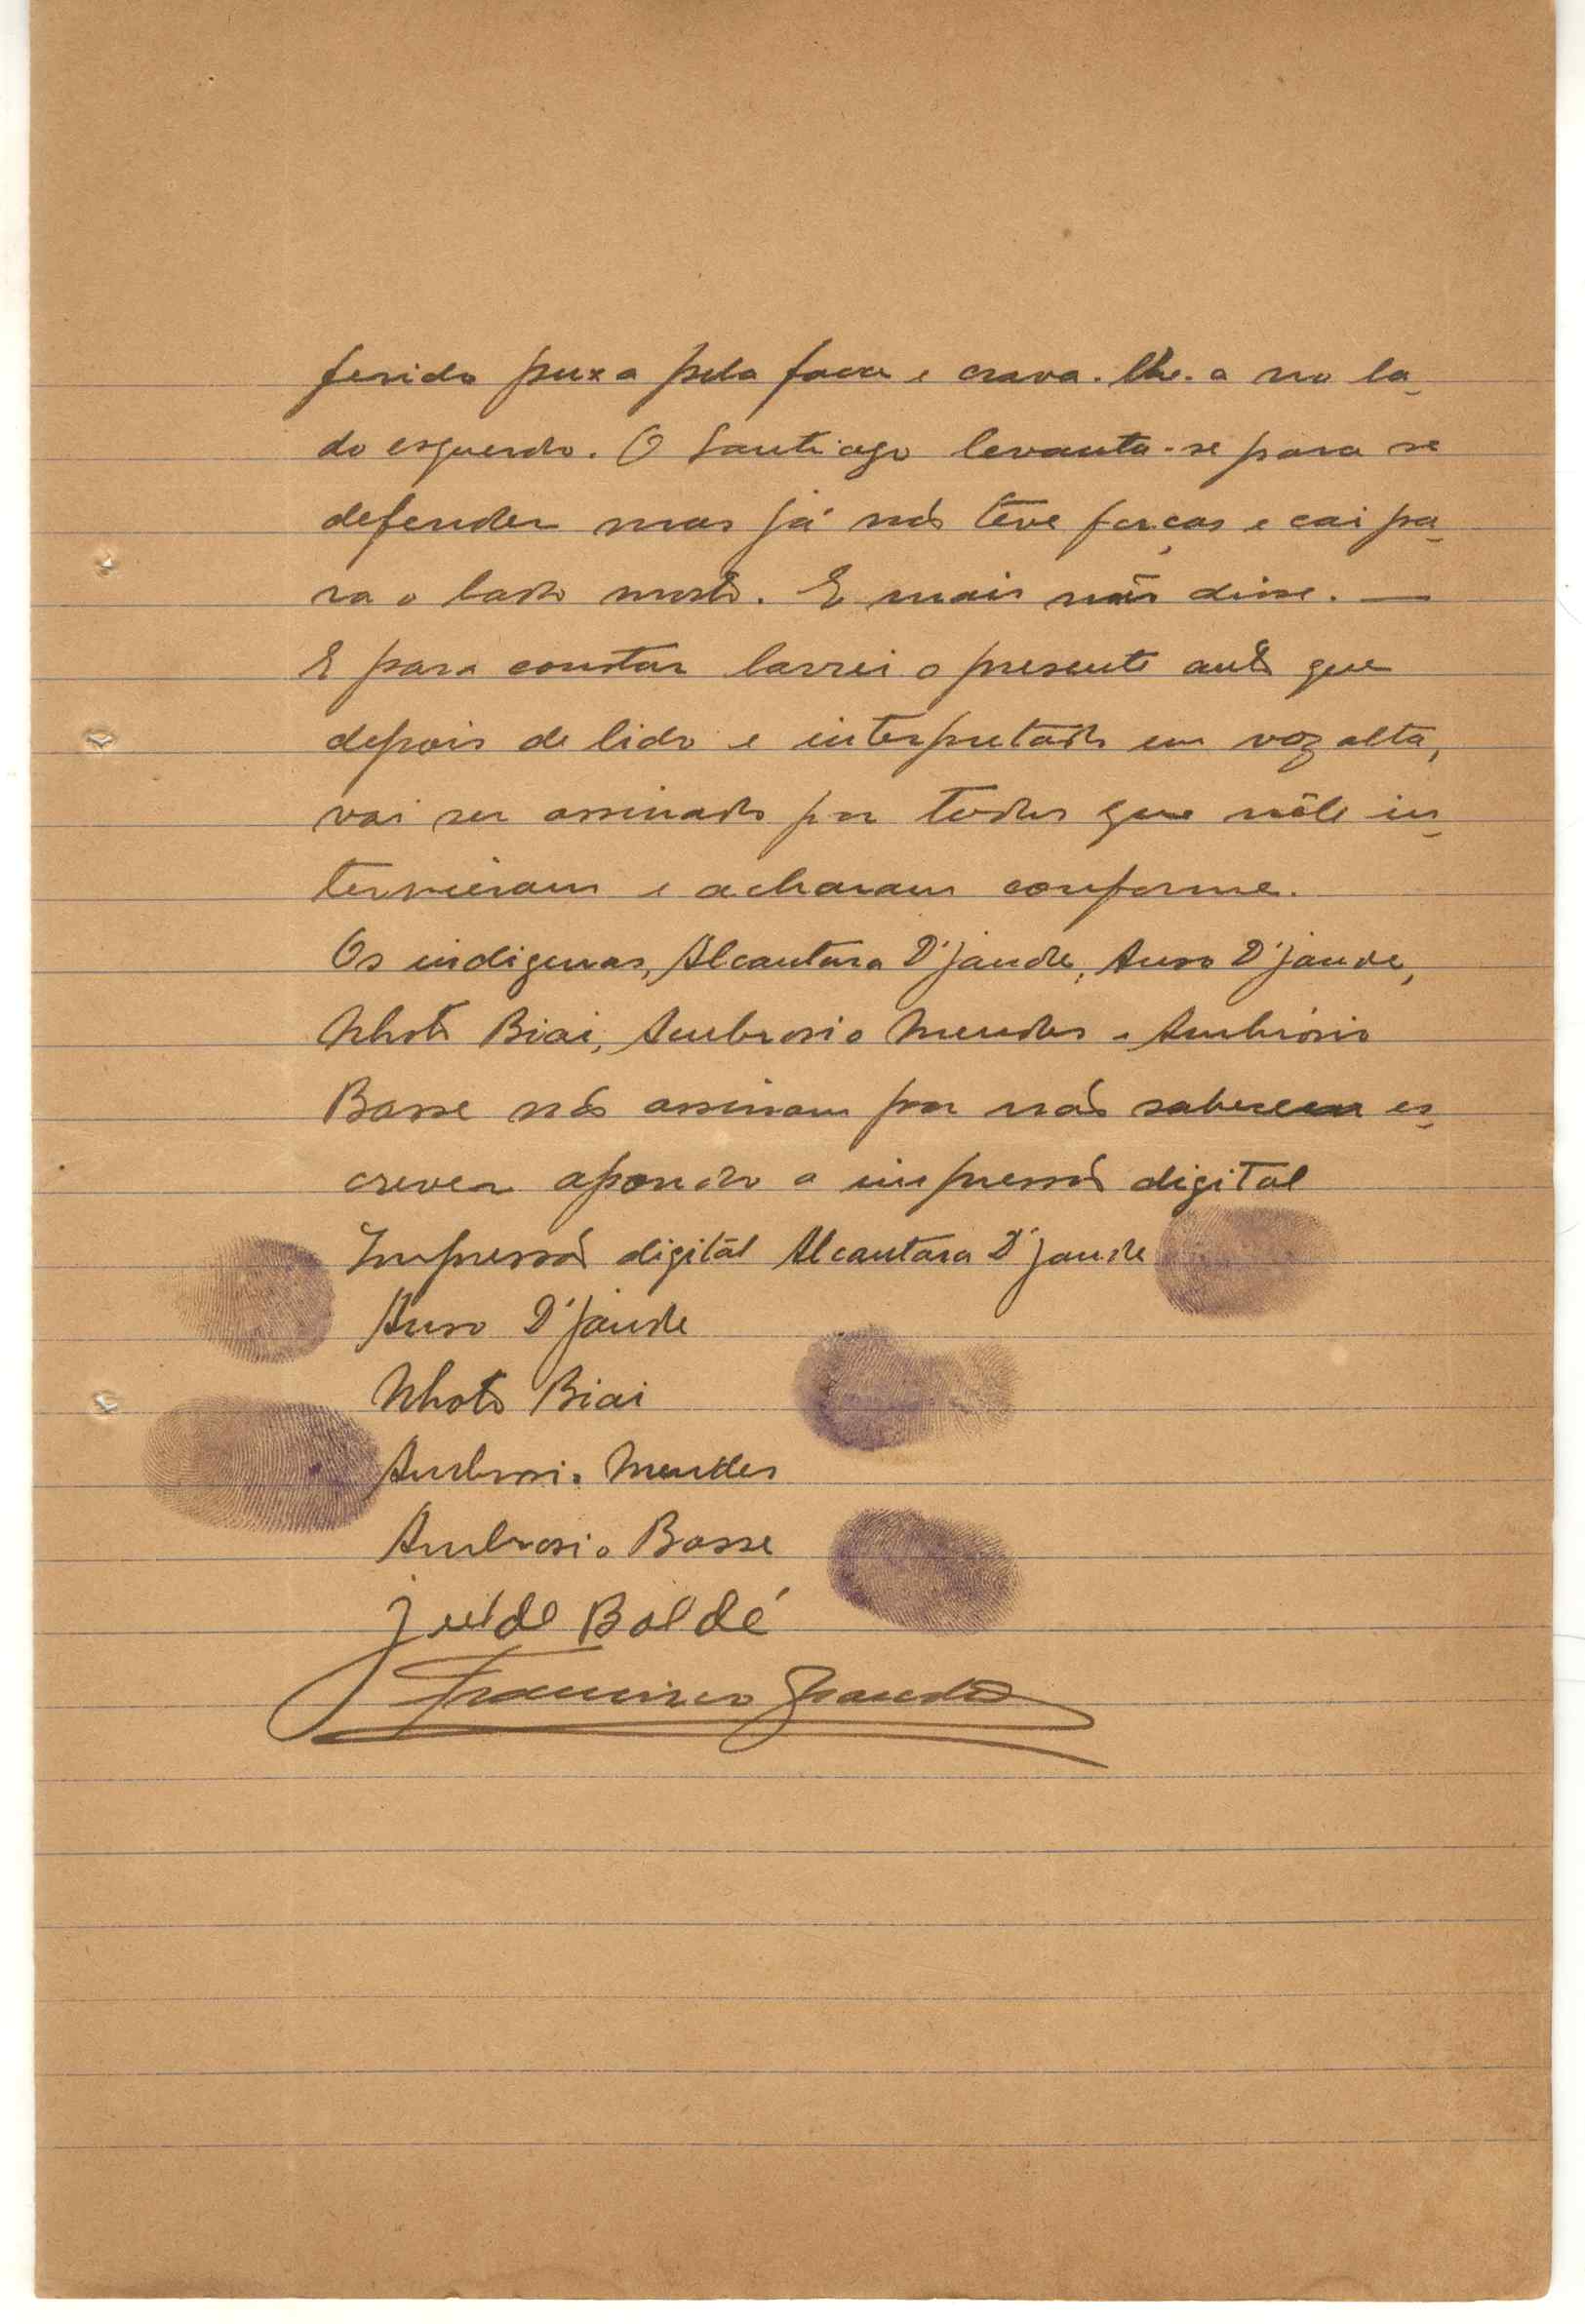 ferido puxa pela faca e crava-lhe-a no la-
do esquerdo. O Santiago levanta-se para se
defender mas já não teve forças e cai pa-
ra o lado morto. E mais não disse. —
E para constar lavrei o presente auto que
depois de lido e interpretado em voz alta,
vai ser assinado por todos que nêle in-
tervieram e acharam conforme.
Os indigenas, Alcantara D'jaude, Auro D'jaude,
Nhoto Biai, Ambrosio Mendes e Ambrósio
Basse não assinam por não saberem es-
crever apondo a impressão digital
Impressão digital Alcantara D'jaude
Auro D'jaude
Nhoto Biai
Ambrosio Mendes
Ambrosio Basse
Baldé
Francisco